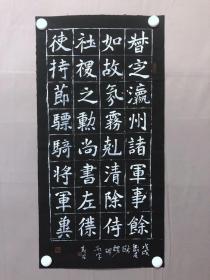 督定瀛州諸軍事餘
如故氛霧剋清除侍
社稷之勳尚書左僕
使持節驃騎將軍冀
戊戌